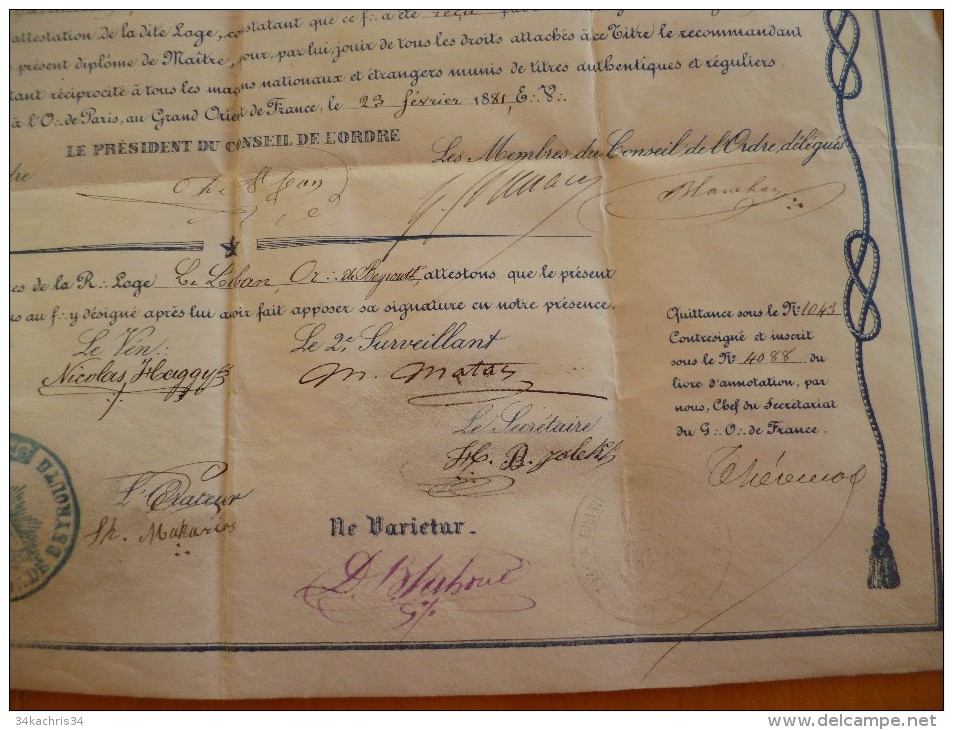 attestation de la dite Loge, constatant que ce f∴ a été reçu
présent diplôme de Maître, pour, par lui, jouir de tous les droits attachés à ce Titre le recommandant
tant réciprocité à tous les maçons nationaux et étrangers munis de titres authentiques et réguliers.
à l'O∴ de Paris, au Grand Orient de France, le 23 février 1881, E∴ V∴
LE PRÉSIDENT DU CONSEIL DE L'ORDRE
Les Membres du Conseil de l'Ordre, délégués
dre
es de la R∴ Loge Le Liban, Or∴ de Beyrouth, attestons que le présent
us au f∴ y désigné après lui avoir fait apposer sa signature en notre présence.
Le Vén∴
Nicolas Haggy
Le 2e Surveillant
M. Matar
Le Secrétaire
H. B.
L'Orateur
Sh. Makarios
Ne Varietur.
D.
Quittance sous le No 1043
Contresigné et inscrit
sous le No 4088 du
livre d'annotation, par
nous, Chef du Secrétariat
du G∴ O∴ de France.
Thévenot
DE BEYROUTH
34kachris34
www.delcampe.net